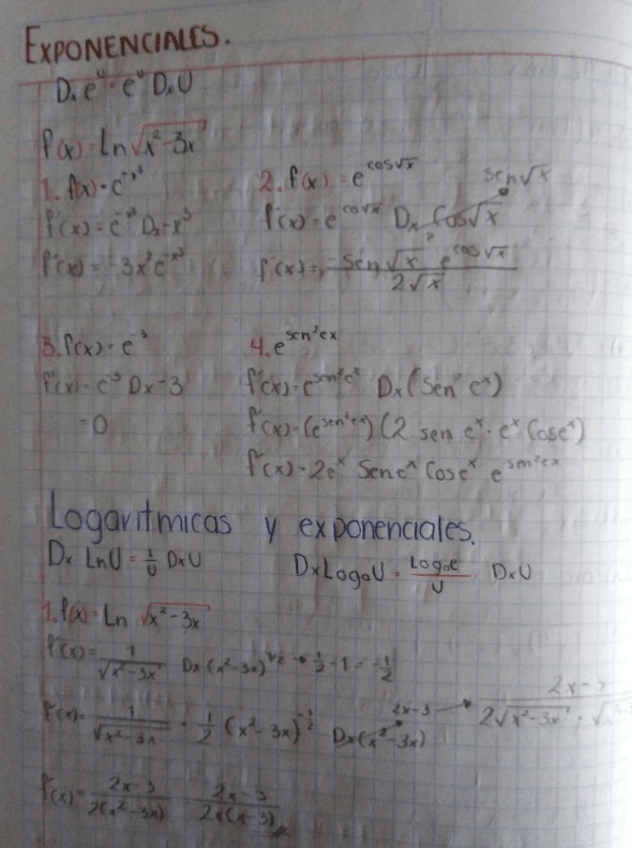 EXPONENCIALES.
Dₓ eᵘ = eᵘ DₓU
f(x) = Ln √(x² - 3x)
1. f(x) = e^(-x³)
f'(x) = e^(-x³) Dₓ -x³
f'(x) = -3x² e^(-x³)
2. f(x) = e^(cos√x)
sen√x
f'(x) = e^(cos√x) Dₓ Cos√x
f'(x) = (-Sen √x · e^(cos√x)) / (2√x)
3. f(x) = e^(-3)
f'(x) = e^(-3) Dx -3
= 0
4. e^(sen²ex)
f'(x) = e^(sen²eˣ) Dx (Sen² eˣ)
f'(x) = (e^(sen²ex)) (2 sen eˣ · eˣ Coseˣ)
f'(x) = 2eˣ Seneˣ Coseˣ e^(sen²ex)
Logaritmicas y exponenciales.
Dx LnU = 1/U DxU
DxLogₐU = Logₐe/U DxU
1. f(x) = Ln √(x² - 3x)
f'(x) = 1/√(x² - 3x) Dx (x² - 3x)^(1/2) → 1/2 - 1 = -1/2
f'(x) = 1/√(x² - 3x) · 1/2 (x² - 3x)^(-1/2) Dx(x² - 3x)
2x-3 → (2x-3) / (2√(x² - 3x) · √
f'(x) = (2x-3) / (2(x² - 3x)) (2x-3) / (2x(x-3))